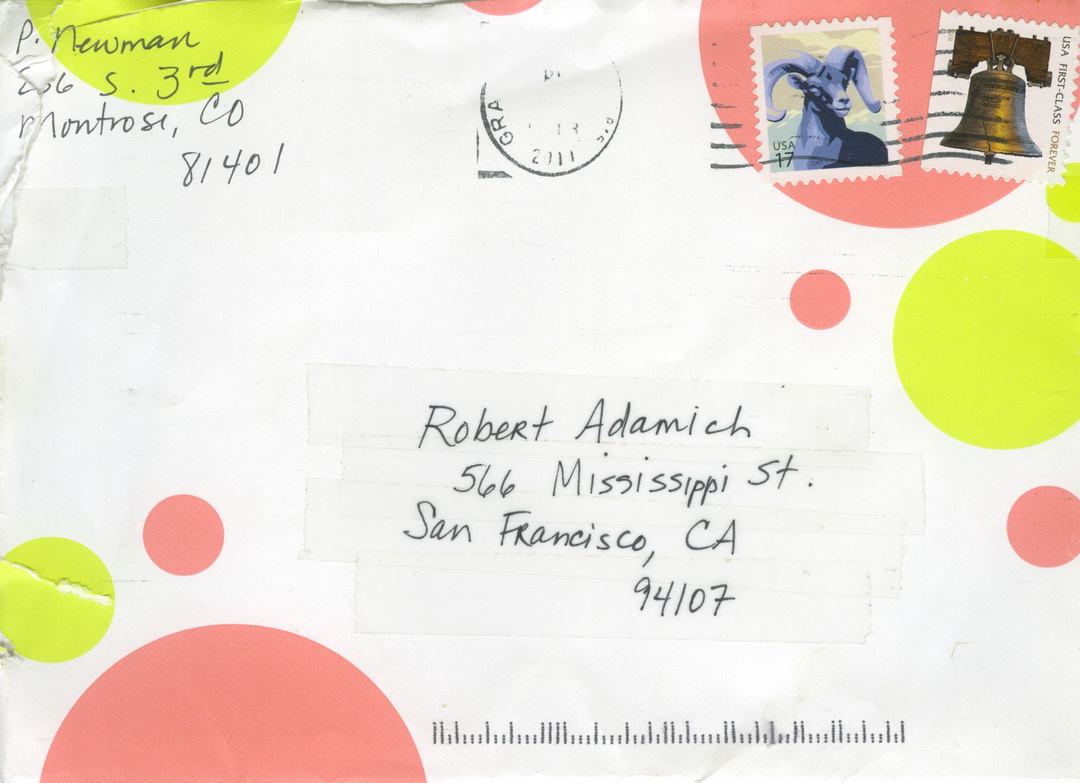 P. Newman
S. 3rd
Montrose, CO
81401
GRA
2011
USA
17
USA FIRST-CLASS FOREVER
Robert Adamich
566 Mississippi St.
San Francisco, CA
94107